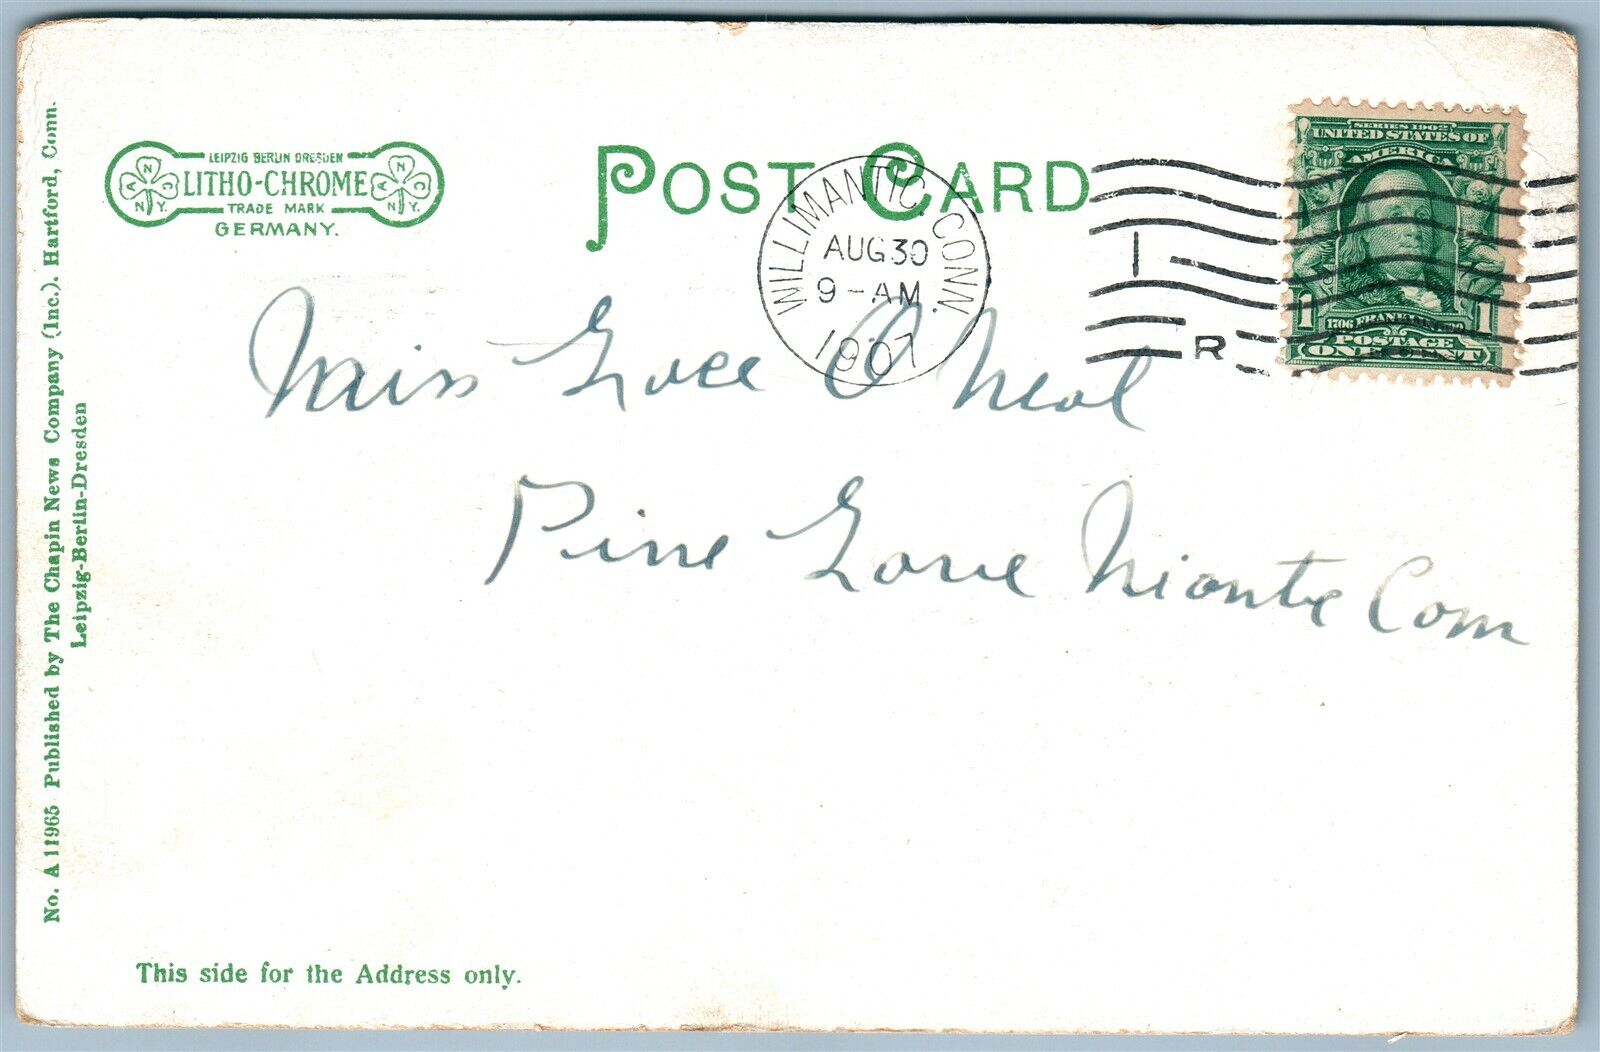 POST CARD
LEIPZIG BERLIN DRESDEN
LITHO-CHROME
TRADE MARK
GERMANY.
A N C N.Y.
A N C N.Y.
WILLIMANTIC. CONN.
AUG 30
9-AM
1907
1
R
SERIES 1902
UNITED STATES OF
AMERICA
1 1
1706 FRANKLIN 1790
POSTAGE
ONE CENT
Miss Grace O Neal
Pine Grove Niantic Conn
No. A 11965 Published by The Chapin News Company (Inc.). Hartford, Conn.
Leipzig-Berlin-Dresden
This side for the Address only.